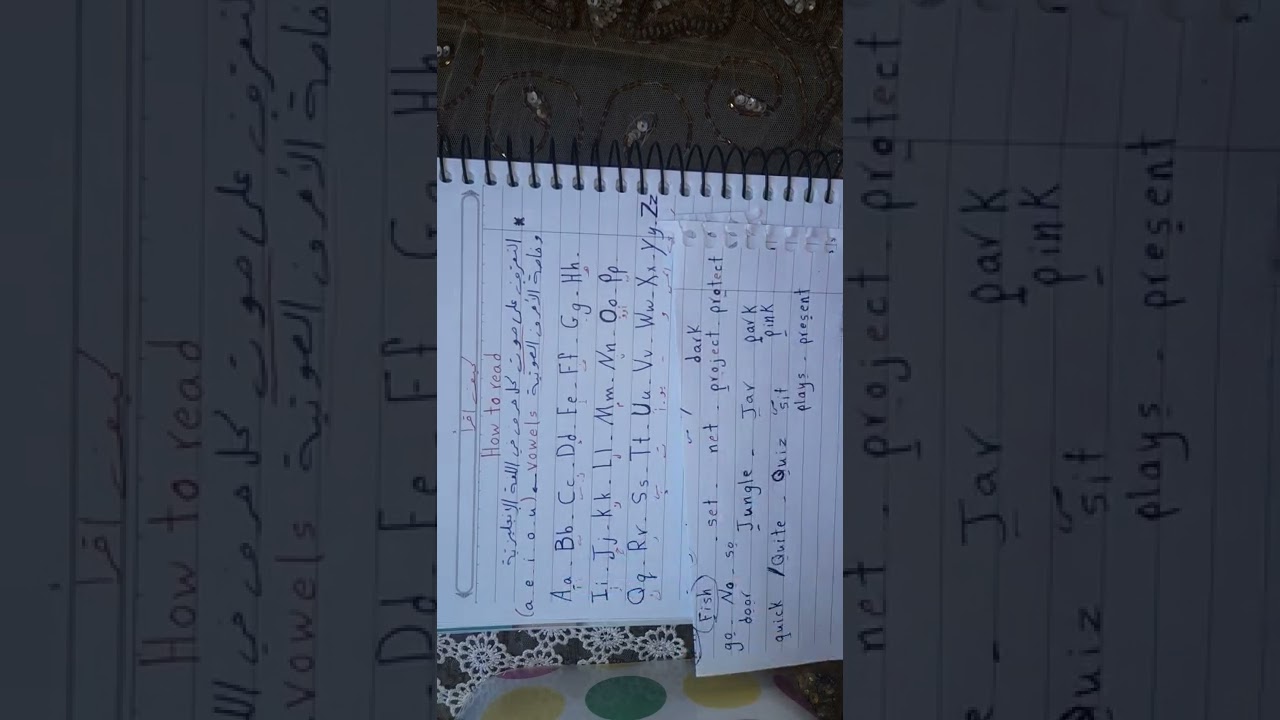 كيف اقرأ
How to read
* التعرف على صوت كل حرف من اللغة الإنجليزية
وخاصة الأحرف الصوتية vowels (a e i o u)
Aa - Bb - Cc - Dd - Ee - Ff - Gg - Hh -
Ii - Jj - Kk - Ll - Mm - Nn - Oo - Pp
Qq - Rr - Ss - Tt - Uu - Vv - Ww - Xx - Yy - Zz
dark
(Fish) - set - net - project - protect
go - No - so
door Jungle - Jar park
pink
quick / Quite - Quiz sit
plays - present